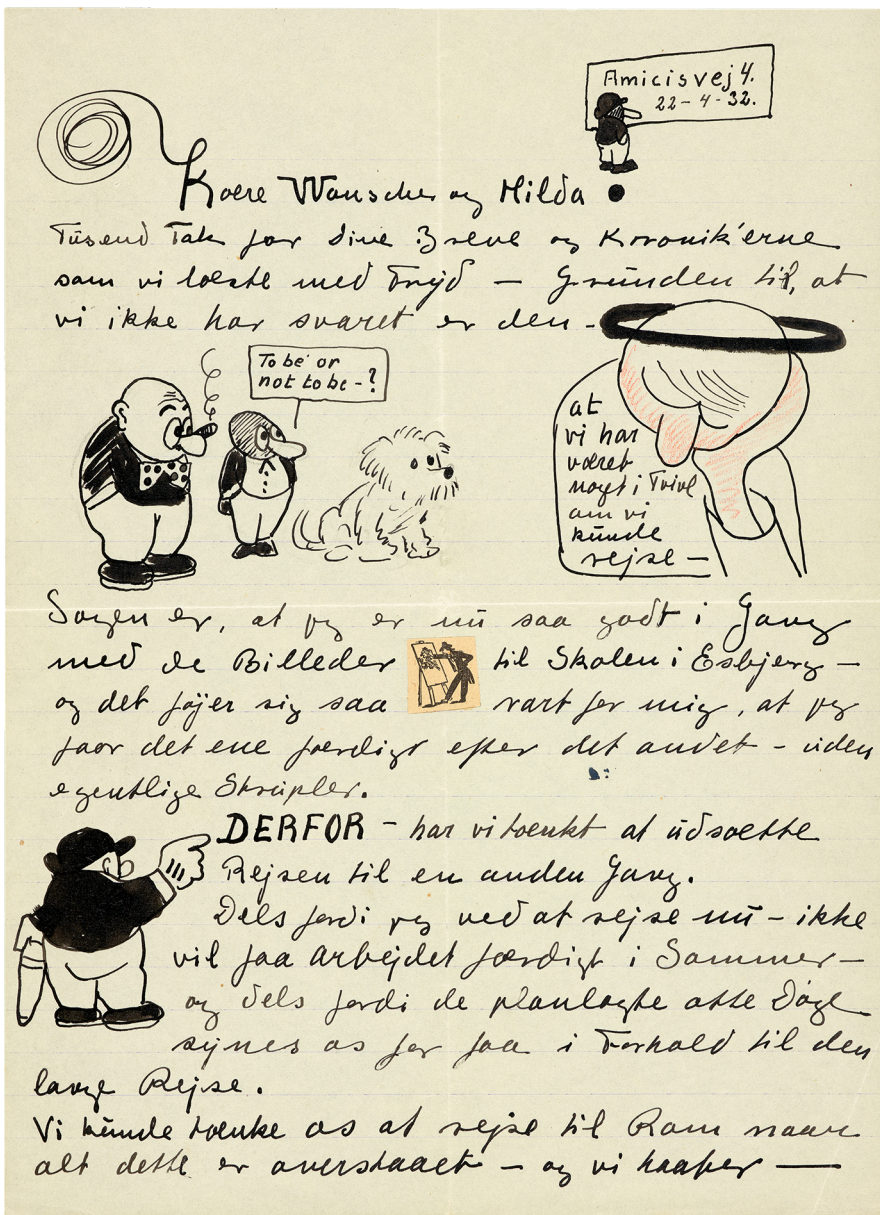 Amicisvej 4.
22-4-32.
Kære Wanscher og Hilda
Tusend Tak for dine Breve og Kronik'erne
som vi læste med Fryd — Grunden til, at
vi ikke har svaret er den -
To be or
not to be - ?
at
vi har
været
noget i Tvivl
om vi
kunde
rejse —
Sagen er, at jeg er nu saa godt i Gang
med de Billeder til Skolen i Esbjerg —
og det føjer sig saa rart for mig, at jeg
faar det ene færdigt efter det andet - uden
egentlige Skrupler.
DERFOR - har vi tænkt at udsætte
Rejsen til en anden Gang.
Dels fordi jeg ved at rejse nu - ikke
vil faa Arbejdet færdigt i Sommer —
og dels fordi de planlagte otte Dage
synes os for faa i Forhold til den
lange Rejse.
Vi kunde tænke os at rejse til Rom naar
alt dette er overstaaet - og vi haaber —